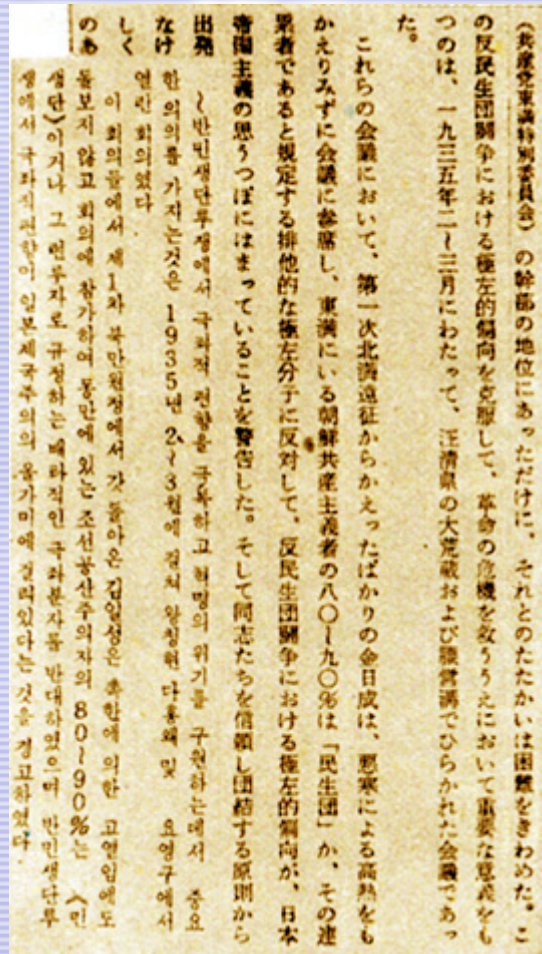 (共産党東満特別委員会)の幹部の地位にあっただけに、それとのたたかいは困難をきわめた。こ
の反民生団闘争における極左的偏向を克服して、革命の危機を救ううえにおいて重要な意義をも
つのは、一九三五年二~三月にわたって、汪清県の大荒崴および腰営溝でひらかれた会議であっ
た。
これらの会議において、第一次北満遠征からかえったばかりの金日成は、悪寒による高熱をも
かえりみずに会議に参席し、東満にいる朝鮮共産主義者の八〇~九〇%は「民生団」か、その連
累者であると規定する排他的な極左分子に反対して、反民生団闘争における極左的偏向が、日本
帝国主義の思うつぼにはまっていることを警告した。そして同志たちを信頼し団結する原則から
出発
なけ
しく
のあ
~반민생단투쟁에서 극좌적 편향을 극복하고 혁명의 위기를 구원하는데서 중요
한 의의를 가지는것은 1935년 2~3월에 걸쳐 왕청현 다홍왜 및 요영구에서
열린 회의였다
이 회의들에서 제1차 북만원정에서 갓 돌아온 김일성은 촉한에 의한 고열임에도
돌보지 않고 회의에 참가하여 동만에 있는 조선공산주의자의 80~90%는 <민
생단>이거나 그 련루자로 규정하는 배타적인 극좌분자를 반대하였으며 반민생단투
쟁에서 극좌적편향이 일본제국주의의 올가미에 걸려있다는 것을 경고하였다.